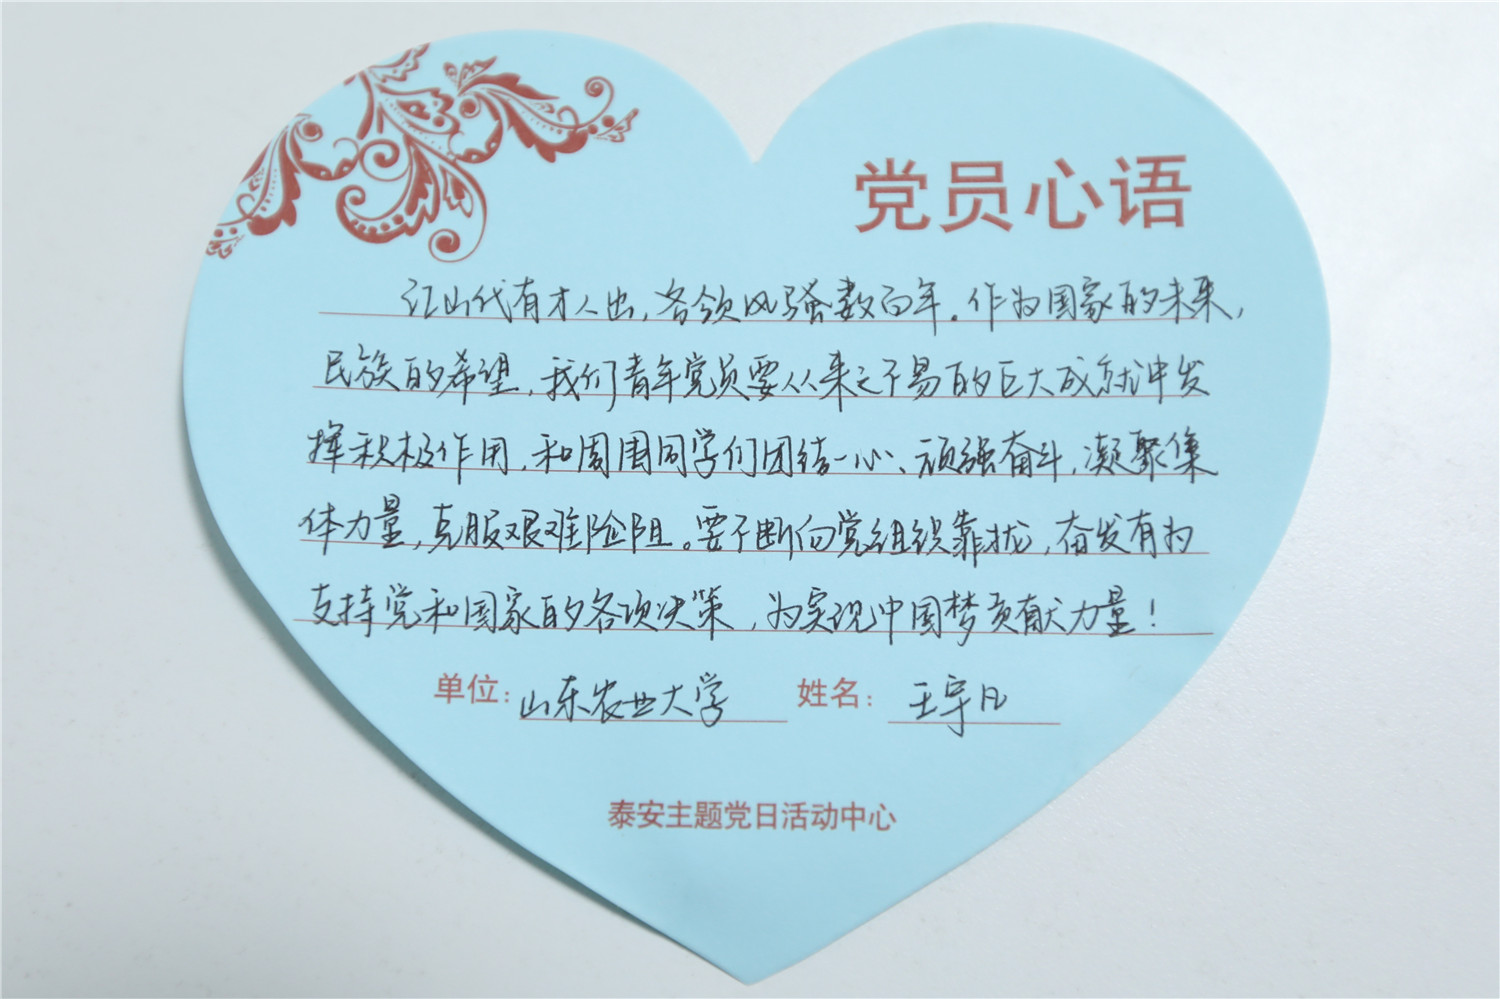 党员心语
江山代有才人出，各领风骚数百年。作为国家的未来，
民族的希望，我们青年党员要从来之不易的巨大成就中发
挥积极作用，和周围同学们团结一心、顽强奋斗，凝聚集
体力量，克服艰难险阻。要不断向党组织靠拢，奋发有为
支持党和国家的各项决策，为实现中国梦贡献力量！
单位：山东农业大学 姓名：王宇凡
泰安主题党日活动中心